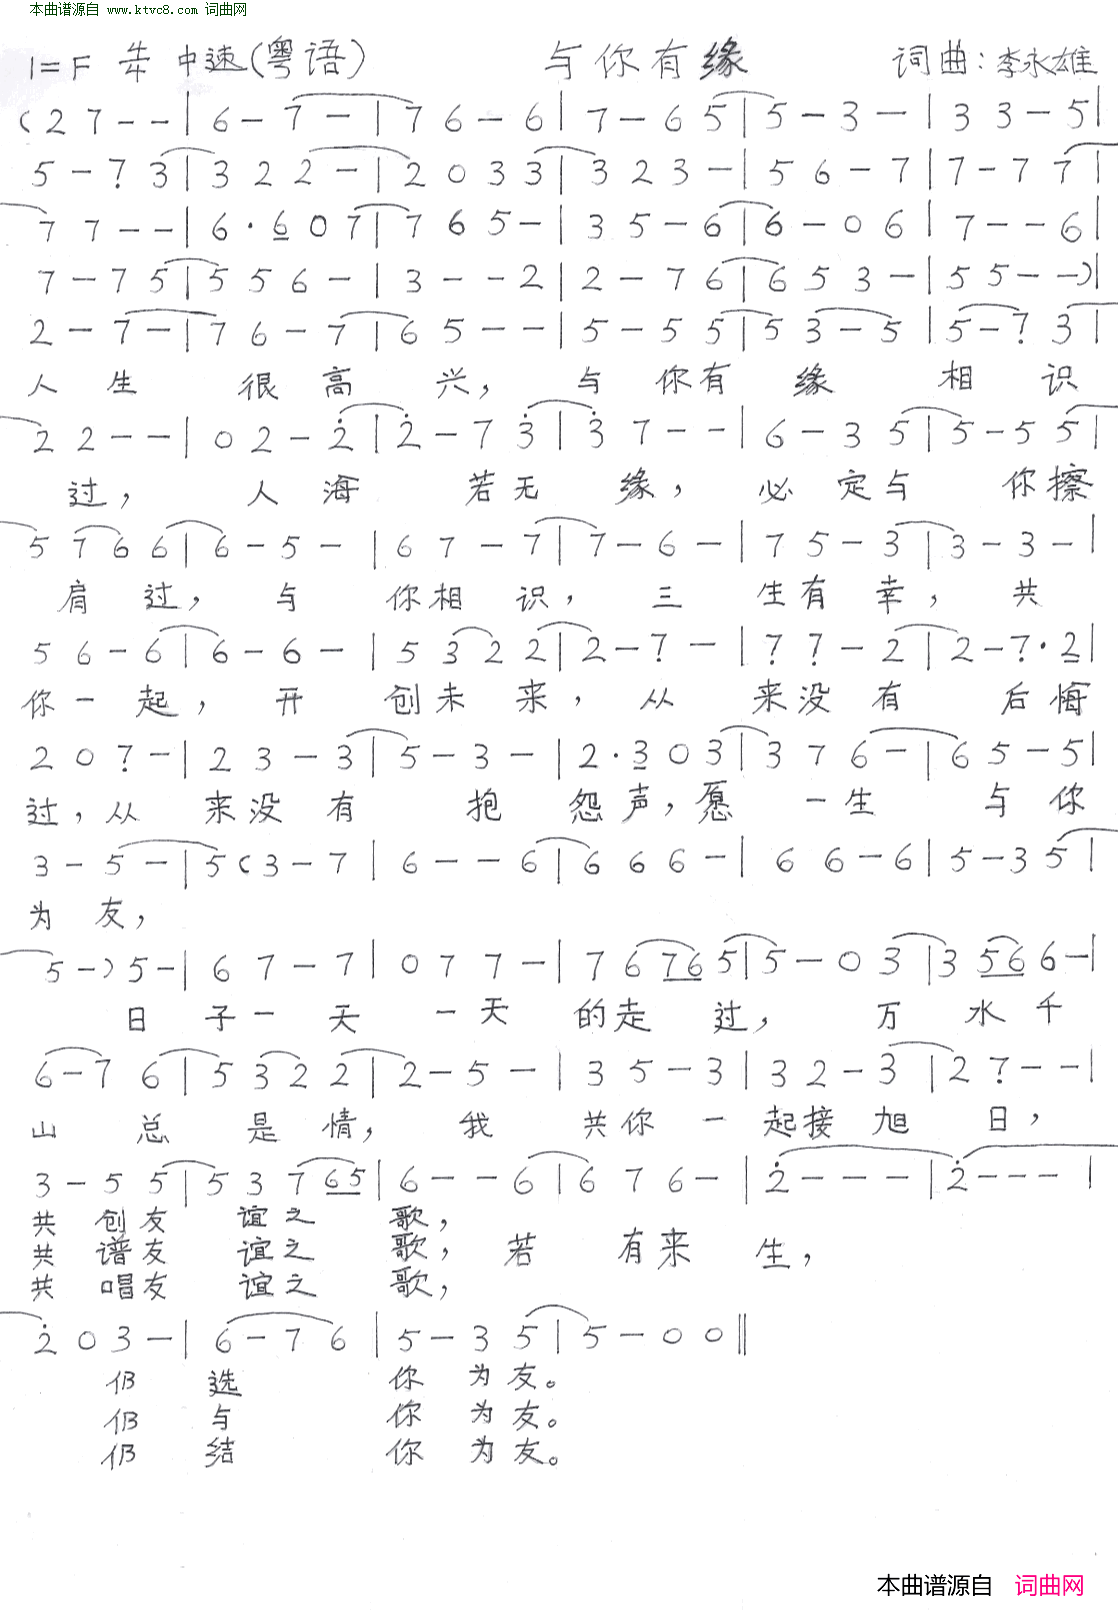 本曲谱源自 www.ktvc8.com 词曲网
1=F 4/4 中速(粤语) 与你有缘 词曲:李永雄
(2 7 - - | 6 - 7 - | 7 6 - 6 | 7 - 6 5 | 5 - 3 - | 3 3 - 5 |
5 - 7̣ 3 | 3 2 2 - | 2 0 3 3 | 3 2 3 - | 5 6 - 7 | 7 - 7 7 |
7 7 - - | 6 · 6 0 7 | 7 6 5 - | 3 5 - 6 | 6 - 0 6 | 7 - - 6 |
7 - 7 5 | 5 5 6 - | 3 - - 2 | 2 - 7 6 | 6 5 3 - | 5 5 - -) |
2 - 7 - | 7 6 - 7 | 6 5 - - | 5 - 5 5 | 5 3 - 5 | 5 - 7̣ 3 |
人 生 很 高 兴, 与 你有 缘 相 识
2 2 - - | 0 2 - 2̇ | 2̇ - 7 3̇ | 3̇ 7 - - | 6 - 3 5 | 5 - 5 5 |
过, 人 海 若无 缘, 必 定与 你擦
5 7 6 6 | 6 - 5 - | 6 7 - 7 | 7 - 6 - | 7 5 - 3 | 3 - 3 - |
肩 过, 与 你相 识, 三 生有 幸, 共
5 6 - 6 | 6 - 6 - | 5 3 2 2 | 2 - 7̣ - | 7̣ 7̣ - 2 | 2 - 7̣ · 2 |
你一起, 开 创未 来, 从 来没 有 后悔
2 0 7̣ - | 2 3 - 3 | 5 - 3 - | 2 · 3 0 3 | 3 7 6 - | 6 5 - 5 |
过,从 来没 有 抱 怨声,愿 一生 与你
3 - 5 - | 5 (3 - 7 | 6 - - 6 | 6 6 6 - | 6 6 - 6 | 5 - 3 5 |
为 友,
5 -) 5 - | 6 7 - 7 | 0 7 7 - | 7 6 7 6 5 | 5 - 0 3 | 3 5 6 6 - |
日 子一 天 一天 的走 过, 万 水千
6 - 7 6 | 5 3 2 2 | 2 - 5 - | 3 5 - 3 | 3 2 - 3 | 2 7̣ - - |
山 总 是 情, 我 共你 一 起接 旭 日,
3 - 5 5 | 5 3 7 6 5 | 6 - - 6 | 6 7 6 - | 2̇ - - - | 2̇ - - - |
共 创友 谊之 歌,
共 谱友 谊之 歌, 若 有来 生,
共 唱友 谊之 歌,
2̇ 0 3 - | 6 - 7 6 | 5 - 3 5 | 5 - 0 0 ||
仍 选 你 为友。
仍 与 你 为友。
仍 结 你 为友。
本曲谱源自 词曲网